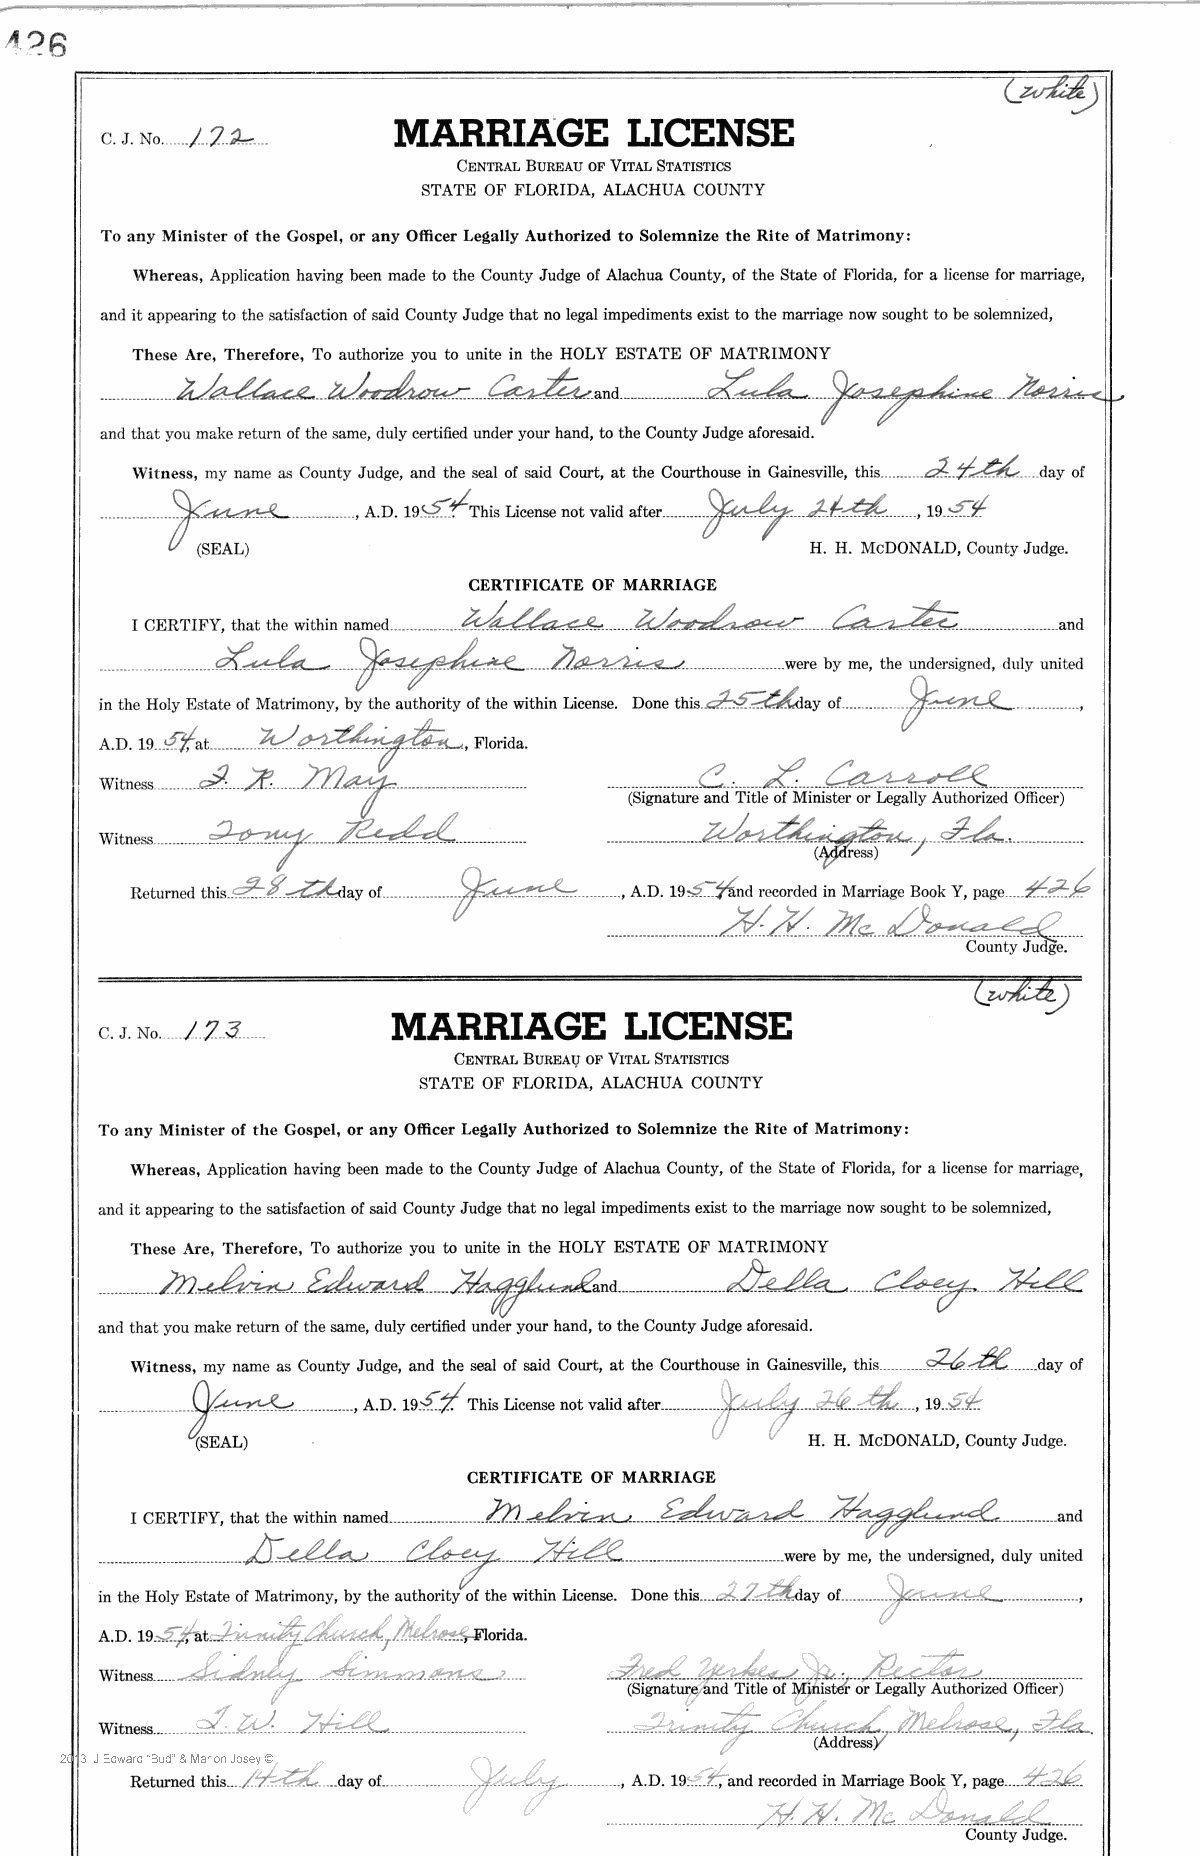 426
(white)
C. J. No. 172
MARRIAGE LICENSE
CENTRAL BUREAU OF VITAL STATISTICS
STATE OF FLORIDA, ALACHUA COUNTY
To any Minister of the Gospel, or any Officer Legally Authorized to Solemnize the Rite of Matrimony:
Whereas, Application having been made to the County Judge of Alachua County, of the State of Florida, for a license for marriage,
and it appearing to the satisfaction of said County Judge that no legal impediments exist to the marriage now sought to be solemnized,
These Are, Therefore, To authorize you to unite in the HOLY ESTATE OF MATRIMONY
Wallace Woodrow Carter and Lula Josephine Norris
and that you make return of the same, duly certified under your hand, to the County Judge aforesaid.
Witness, my name as County Judge, and the seal of said Court, at the Courthouse in Gainesville, this 24th day of
June, A.D. 1954. This License not valid after July 24th, 1954
(SEAL) H. H. McDONALD, County Judge.
CERTIFICATE OF MARRIAGE
I CERTIFY, that the within named Wallace Woodrow Carter and
Lula Josephine Norris were by me, the undersigned, duly united
in the Holy Estate of Matrimony, by the authority of the within License. Done this 25th day of June,
A.D. 1954, at Worthington, Florida.
Witness J. R. May C. L. Carroll
(Signature and Title of Minister or Legally Authorized Officer)
Witness Tony Redd Worthington, Fla.
(Address)
Returned this 28th day of June, A.D. 1954, and recorded in Marriage Book Y, page 426
H. H. McDonald
County Judge.
(white)
C. J. No. 173
MARRIAGE LICENSE
CENTRAL BUREAU OF VITAL STATISTICS
STATE OF FLORIDA, ALACHUA COUNTY
To any Minister of the Gospel, or any Officer Legally Authorized to Solemnize the Rite of Matrimony:
Whereas, Application having been made to the County Judge of Alachua County, of the State of Florida, for a license for marriage,
and it appearing to the satisfaction of said County Judge that no legal impediments exist to the marriage now sought to be solemnized,
These Are, Therefore, To authorize you to unite in the HOLY ESTATE OF MATRIMONY
Melvin Edward Hagglund and Della Cloey Hill
and that you make return of the same, duly certified under your hand, to the County Judge aforesaid.
Witness, my name as County Judge, and the seal of said Court, at the Courthouse in Gainesville, this 26th day of
June, A.D. 1954. This License not valid after July 26th, 1954
(SEAL) H. H. McDONALD, County Judge.
CERTIFICATE OF MARRIAGE
I CERTIFY, that the within named Melvin Edward Hagglund and
Della Cloey Hill were by me, the undersigned, duly united
in the Holy Estate of Matrimony, by the authority of the within License. Done this 27th day of June,
A.D. 1954, at Trinity Church, Melrose, Florida.
Witness Sidney Simmons Fred Yerkes Jr., Rector
(Signature and Title of Minister or Legally Authorized Officer)
Witness J. W. Hill Trinity Church, Melrose, Fla.
(Address)
2013 J Edward "Bud" & Marion Josey ©
Returned this 14th day of July, A.D. 1954, and recorded in Marriage Book Y, page 426
H. H. McDonald
County Judge.